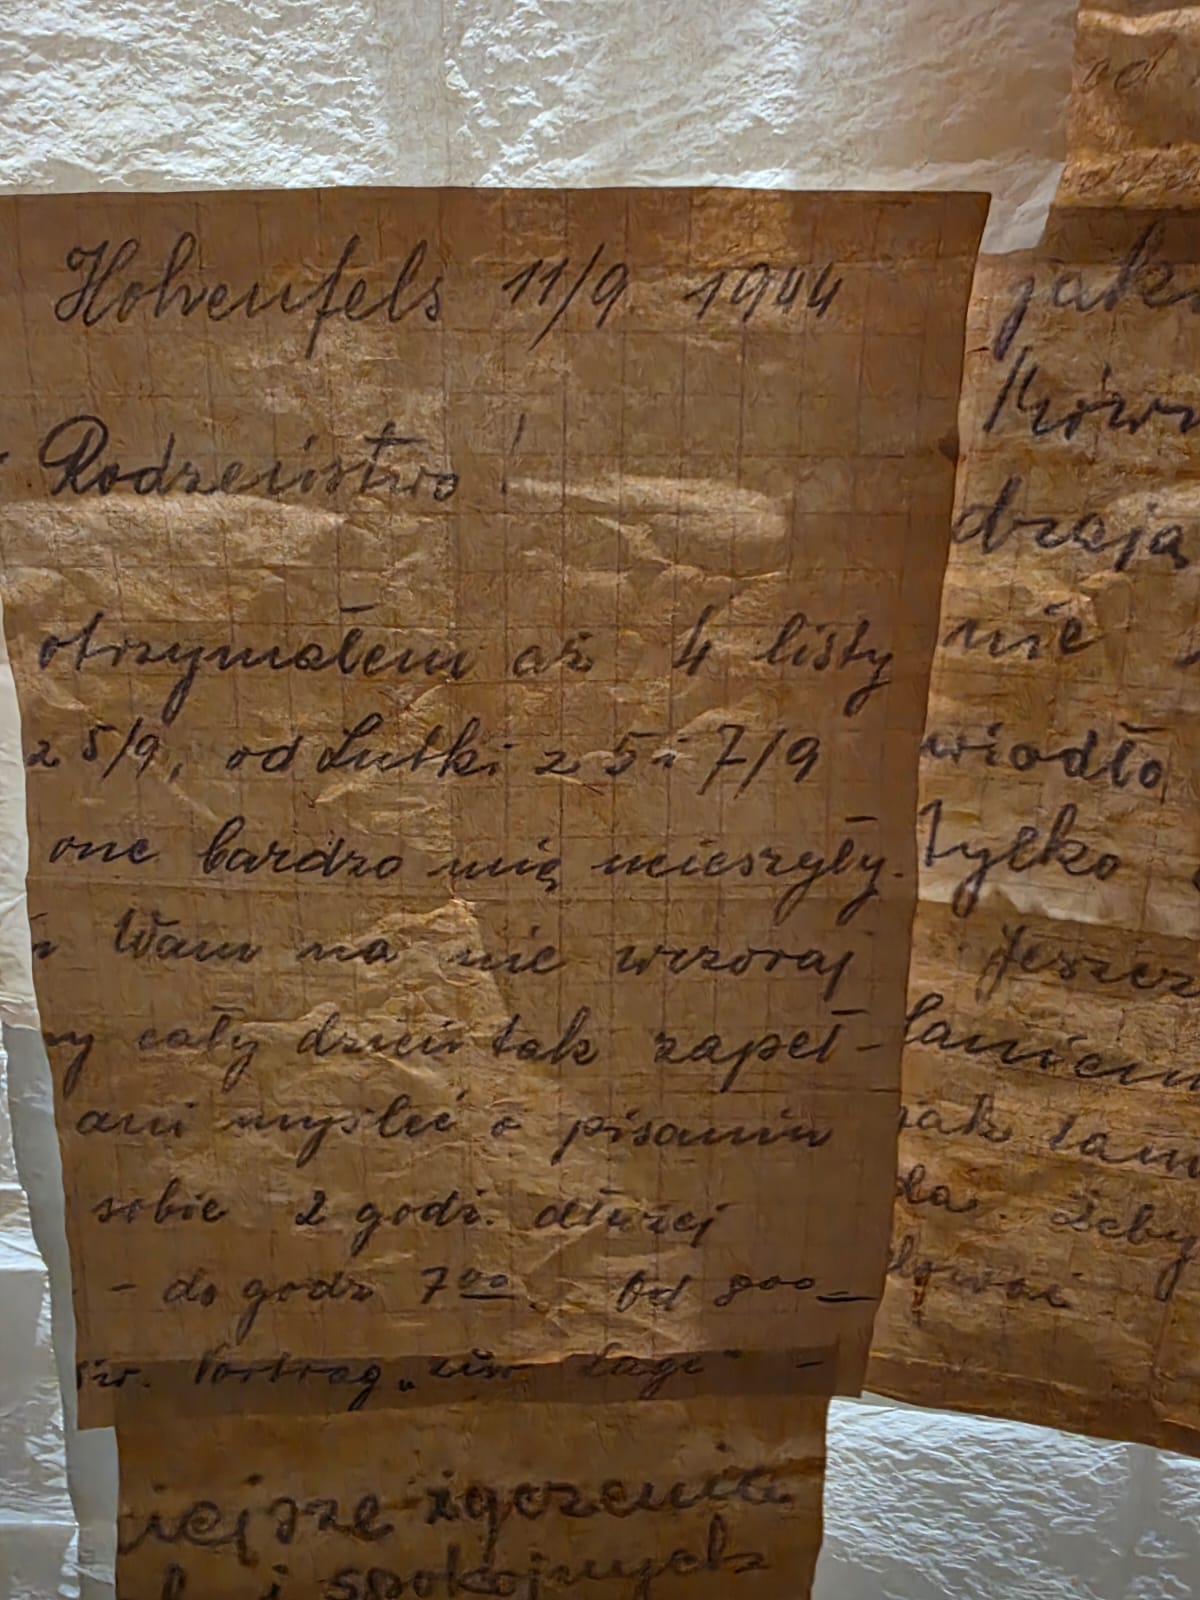 Hohenfels 11/9 1944
Rodzeństwo!
otrzymałem aż 4 listy
z 5/9, od Lutki z 5 i 7/9
one bardzo mię ucieszyły.
Wam na nie wczoraj
ny cały dzień tak zapeł-
ani myśleć o pisaniu
sobie 2 godz. dłużej
- do godz 7 00. Od 8 00 =
Vortrag „zur Lage" -
iejsze życzenia
i spokojnych
od
jak
Równ
dzają
nie
wiodło
tylko
Jeszcz
łaniem
jak tam
ła. Żeby